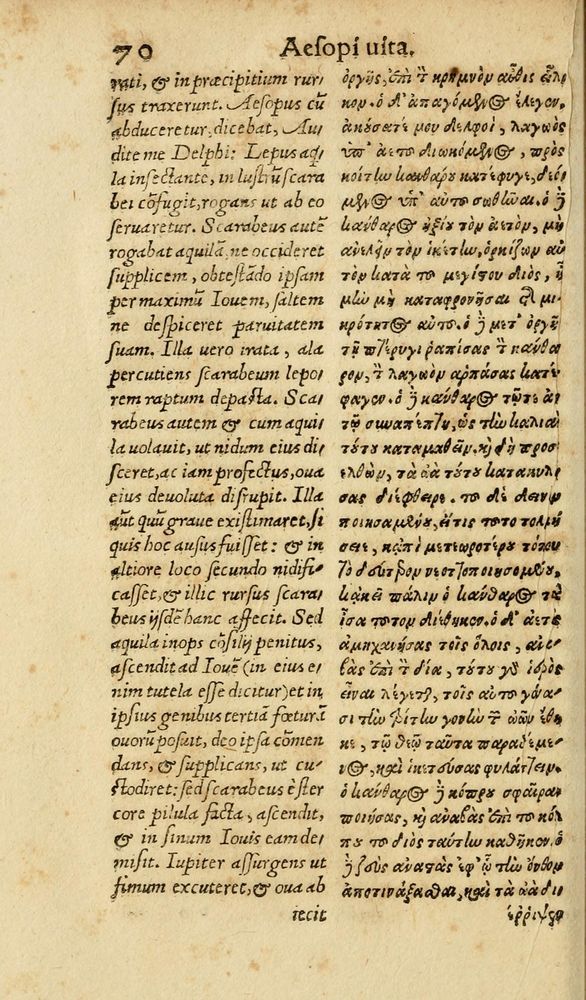 70 Aesopi uita.
rati, & in præcipitium rur/
sus traxerunt. Aesopus cũ
abduceretur, dicebat, Au/
dite me Delphi: Lepus aqʼ/
la insectante, in lustrũ scara
bei cõfugit, rogans ut ab eo
seruaretur. Scarabeus autẽ
rogabat aquilã, ne occideret
supplicem, obtestãdo ipsam
per maximũ Iouem, saltem
ne despiceret paruitatem
suam. Illa uero irata, ala
percutiens scarabeum lepo/
rem raptum depasta. Sca/
rabeus autem & cum aqui/
la uolauit, ut nidum eius di/
sceret, ac iam profectus, oua
eius deuoluta disrupit. Illa
aũt quũ graue existimaret, si
quis hoc ausus fuisset: & in
altiore loco secundo nidifi/
casset, & illic rursus scara/
beus ijsdẽ hanc affecit. Sed
aquila inops cõsilij penitus,
ascendit ad Iouẽ (in eius e/
nim tutela esse dicitur) et in
ipsius genibus tertiã fœturã
ouorũ posuit, deo ipsa cõmen
dans, & supplicans, ut cu/
stodiret: sed scarabeus è ster
core pilula facta, ascendit,
& in sinum Iouis eam de/
misit. Iupiter assurgens ut
fimum excuteret, & oua ab
iecit
ὀργῆς, ἐπὶ τ͂ κρημνὸν αὖθις εἷλ
κον. ὁ δ' ἀπαγόμενος ἔλεγεν.
ἀκούσατέ μου δελφοὶ, λαγωὸς
ὑπ' ἀετοῦ διωκόμενος, πρὸς
κοίτην κανθάρου κατέφυγε, δεό/
μενος ὑπ' αὐτοῦ σωθῆναι. ὁ ἢ
κάνθαρος ἠξίου τὸν ἀετὸν, μὴ
ἀνελεῖν τὸν ἱκέτην, ὁρκίζων αὐ
τὸν κατὰ τοῦ μεγίστου διὸς, ἦ
μὴν μὴ καταφρονῆσαι τ͂ μι/
κρότητος αὐτοῦ. ὁ ἢ μετ' ὀργῆς
τῇ πτέρυγι ῥαπίσας τ͂ κάνθα
ρον, τ͂ λαγωὸν ἁρπάσας κατέ/
φαγεν. ὁ ἢ κάνθαρος τῷ τε ἀε/
τῷ συναπέπτη, ὡς τὴν καλιὰν
τούτου καταμαθεῖν. καὶ δὴ προσ
ελθὼν, τὰ ὠὰ τούτου κατακυλί/
σας διέφθειρε. τοῦ δὲ δεινὸν
ποιησαμένου, εἴ τις τοῦτο τολμή
σειε, κἀπὶ μετεωροτέρου τόπου
τὸ δεύτερον νεοττοποιησαμένου,
κἀκεῖ πάλιν ὁ κάνθαρος τὰ
ἶσα τοῦτον διέθηκεν. ὁ δ' ἀετὸς
ἀμηχανήσας τοῖς ὅλοις, ἀνα/
βὰς ἐπὶ τ͂ δία, τούτου γὸ ἱερὸς
εἶναι λέγεται, τοῖς αὐτοῦ γόνα/
σι τὴν τρίτην γονὴν τ͂ ὠῶν ἔθη
κε, τῷ θεῷ ταῦτα παραθέμε/
νος, καὶ ἱκετεύσας φυλάττειν.
ὁ κάνθαρος ἢ κόπρου σφαῖραν
ποιήσας, καὶ ἀναβὰς ἐπὶ τοῦ κόλ
που τοῦ διὸς ταύτην καθῆκεν. ὁ
ἢ ζεὺς ἀναστὰς ἐφ' ᾧ τὴν ὄνθον
ἀποτινάξασθαι, καὶ τὰ ὠὰ δι/
έρριψεν